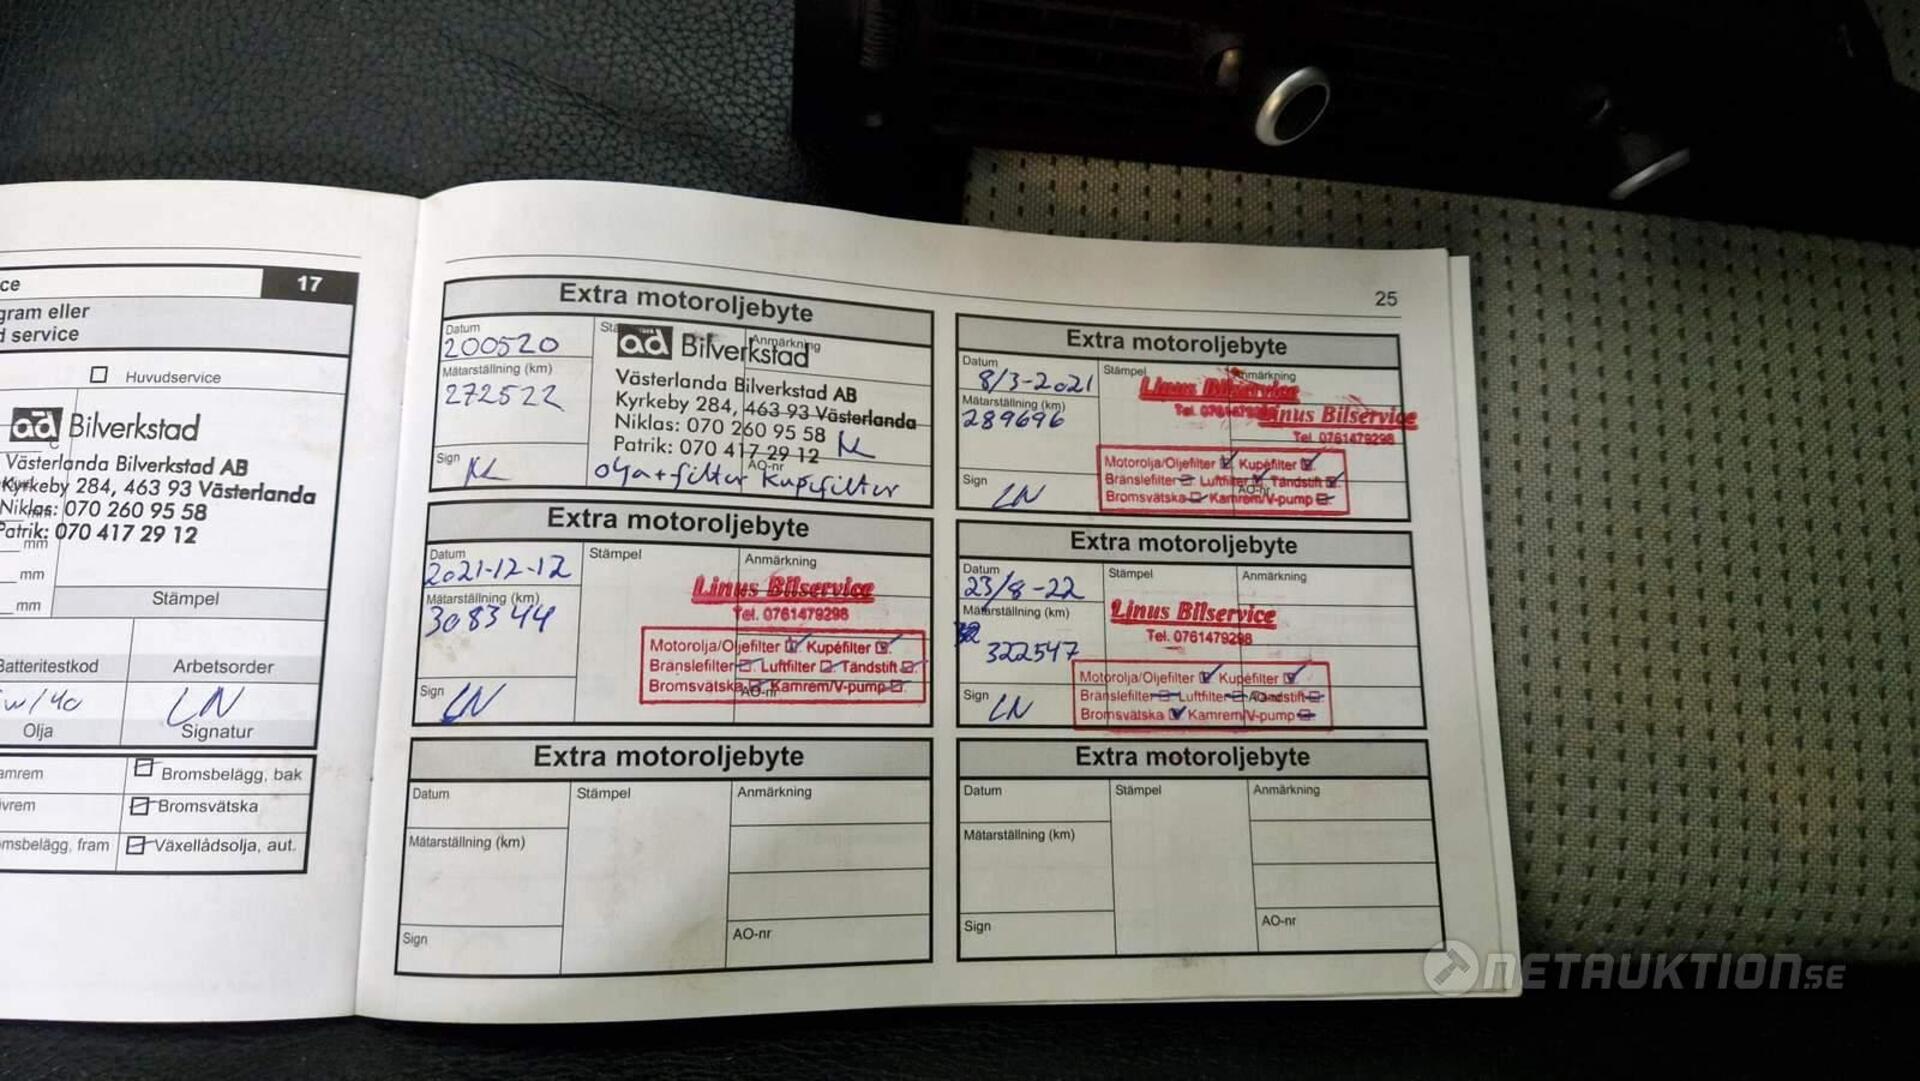 ce 17
gram eller
d service
Huvudservice
ad Bilverkstad
Västerlanda Bilverkstad AB
Kyrkeby 284, 463 93 Västerlanda
Niklas: 070 260 95 58
Patrik: 070 417 29 12
mm
mm
mm
Stämpel
Batteritestkod Arbetsorder
w/40 LN
Olja Signatur
amrem Bromsbelägg, bak
ivrem Bromsvätska
omsbelägg, fram Växellådsolja, aut.
25
Extra motoroljebyte
Datum Anmärkning
200520
ad Bilverkstad
Mätarställning (km)
272522
Västerlanda Bilverkstad AB
Kyrkeby 284, 463 93 Västerlanda
Niklas: 070 260 95 58
Patrik: 070 417 29 12
Sign AO-nr
olja + filter Kupefilter
Extra motoroljebyte
Datum Stämpel Anmärkning
8/3-2021
Linus Bilservice
Mätarställning (km)
289696
Linus Bilservice
Tel. 0761479298
Motorolja/Oljefilter Kupéfilter
Bränslefilter Luftfilter Tändstift
Bromsvätska Kamrem/V-pump
Sign AO-nr
LN
Extra motoroljebyte
Datum Stämpel Anmärkning
2021-12-12
Linus Bilservice
Tel. 0761479298
Mätarställning (km)
308344
Motorolja/Oljefilter Kupéfilter
Bränslefilter Luftfilter Tändstift
Bromsvätska Kamrem/V-pump
Sign AO-nr
LN
Extra motoroljebyte
Datum Stämpel Anmärkning
23/8-22
Linus Bilservice
Tel. 0761479298
Mätarställning (km)
322547
Motorolja/Oljefilter Kupéfilter
Bränslefilter Luftfilter Tändstift
Bromsvätska Kamrem/V-pump
Sign
LN
Extra motoroljebyte
Datum Stämpel Anmärkning
Mätarställning (km)
Sign AO-nr
Extra motoroljebyte
Datum Stämpel Anmärkning
Mätarställning (km)
Sign AO-nr
NETAUKTION.SE